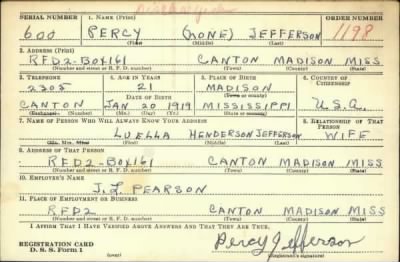 SERIAL NUMBER 1. NAME (Print) ORDER NUMBER
600 PERCY (NONE) JEFFERSON 1198
(First) (Middle) (Last)
2. ADDRESS (Print)
RFD2-BOX161 CANTON MADISON MISS
(Number and street or R. F. D. number) (Town) (County) (State)
3. TELEPHONE 4. AGE IN YEARS 5. PLACE OF BIRTH 6. COUNTRY OF CITIZENSHIP
2305 21 MADISON
DATE OF BIRTH (Town or county)
CANTON JAN 20 1919 MISSISSIPPI U.S.A.
(Exchange) (Number) (Mo.) (Day) (Yr.) (State or country)
7. NAME OF PERSON WHO WILL ALWAYS KNOW YOUR ADDRESS 8. RELATIONSHIP OF THAT PERSON
LUELLA HENDERSON JEFFERSON WIFE
(Mr., Mrs., Miss) (First) (Middle) (Last)
9. ADDRESS OF THAT PERSON
RFD2-BOX161 CANTON MADISON MISS
(Number and street or R. F. D. number) (Town) (County) (State)
10. EMPLOYER'S NAME
J. L PEARSON
11. PLACE OF EMPLOYMENT OR BUSINESS
RFD2 CANTON MADISON MISS
(Number and street or R. F. D. number) (Town) (County) (State)
I AFFIRM THAT I HAVE VERIFIED ABOVE ANSWERS AND THAT THEY ARE TRUE.
REGISTRATION CARD
D. S. S. Form 1 Percy Jefferson
(over) (Registrant's signature)